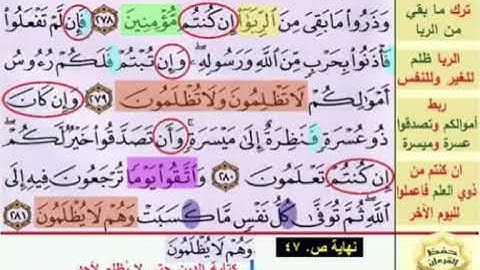 وَذَرُوا۟ مَا بَقِىَ مِنَ ٱلرِّبَوٰٓا۟ إِن كُنتُم مُّؤْمِنِينَ ٢٧٨ فَإِن لَّمْ تَفْعَلُوا۟
فَأْذَنُوا۟ بِحَرْبٍ مِّنَ ٱللَّهِ وَرَسُولِهِۦ ۖ وَإِن تُبْتُمْ فَلَكُمْ رُءُوسُ
أَمْوَٰلِكُمْ لَا تَظْلِمُونَ وَلَا تُظْلَمُونَ ٢٧٩ وَإِن كَانَ
ذُو عُسْرَةٍ فَنَظِرَةٌ إِلَىٰ مَيْسَرَةٍ ۚ وَأَن تَصَدَّقُوا۟ خَيْرٌ لَّكُمْ ۖ
إِن كُنتُمْ تَعْلَمُونَ ٢٨٠ وَٱتَّقُوا۟ يَوْمًا تُرْجَعُونَ فِيهِ إِلَى
ٱللَّهِ ۖ ثُمَّ تُوَفَّىٰ كُلُّ نَفْسٍ مَّا كَسَبَتْ وَهُمْ لَا يُظْلَمُونَ ٢٨١
ترك ما بقي
من الربا
الربا ظلم
للغير وللنفس
ربط
أموالكم وتصدقوا
عسرة وميسرة
ان كنتم من
ذوي العلم فاعملوا
لليوم الآخر
نهاية ص. ٤٧
وَهُمْ لَا يُظْلَمُونَ
كتابة الدين حتى لا يُظلم لأحد
حفظ
القرآن